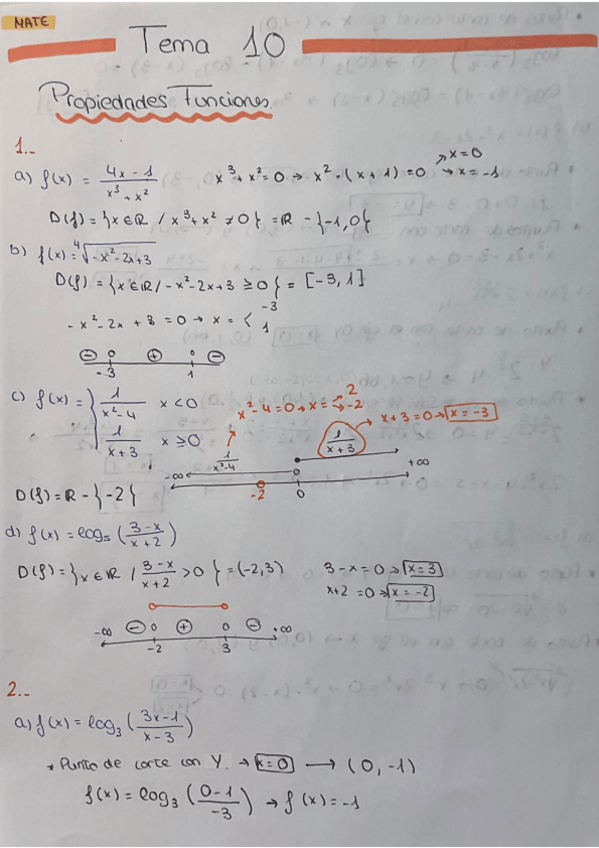 MATE
Tema 10
Propiedades Funciones
1.-
a) f(x) = (4x-1)/(x³+x²)   x³+x²=0 → x²·(x+1)=0 ↗x=0 ↘x=-1
D(f) = {x∈ℝ / x³+x² ≠ 0} = ℝ - {-1,0}
b) f(x) = ⁴√(-x²-2x+3)
D(f) = {x∈ℝ / -x²-2x+3 ≥ 0} = [-3, 1]
-x²-2x+3=0 → x = < -3 1
⊖ 0 ⊕ 0 ⊖
-3 1
c) f(x) = { 1/(x²-4) x<0   x²-4=0 → x = ↗2 ↘-2
1/(x+3) x≥0   1/(x+3) → x+3=0 → x=-3
1/(x²-4)
-∞ +∞
-2 0
D(f) = ℝ - {-2}
d) f(x) = log₅ ((3-x)/(x+2))
D(f) = {x∈ℝ / (3-x)/(x+2) > 0} = (-2,3)   3-x=0 → x=3
x+2=0 → x=-2
-∞ ⊖ 0 ⊕ 0 ⊖ +∞
-2 3
2.-
a) f(x) = log₃ ((3x-1)/(x-3))
* Punto de corte con Y. → x=0 → (0,-1)
f(x) = log₃ ((0-1)/-3) → f(x) = -1